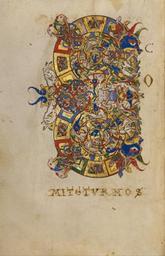 C
O
MITGTVRHOS